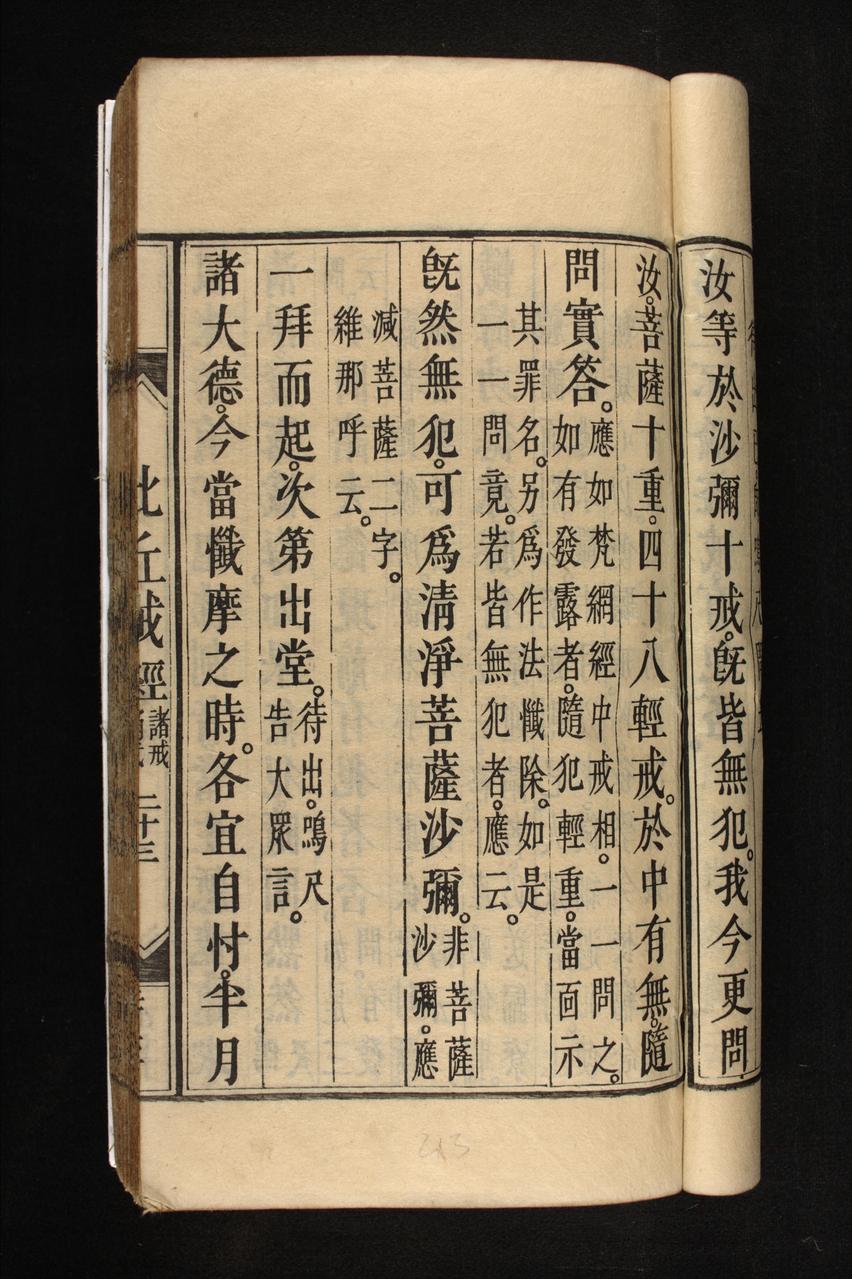 汝等於沙彌十戒。旣皆無犯。我今更問
汝。菩薩十重。四十八輕戒。於中有無。隨
問實答。應如梵網經中戒相。一一問之。
如有發露者。隨犯輕重。當面示
其罪名。另爲作法懺除。如是
一一問竟。若皆無犯者。應云。
旣然無犯。可爲清淨菩薩沙彌。非菩薩
沙彌。應
減菩薩二字。
維那呼云。
一拜而起。次第出堂。待出。鳴尺
告大眾言。
諸大德。今當懺摩之時。各宜自忖。半月
比丘戒經 諸戒 二十三
213